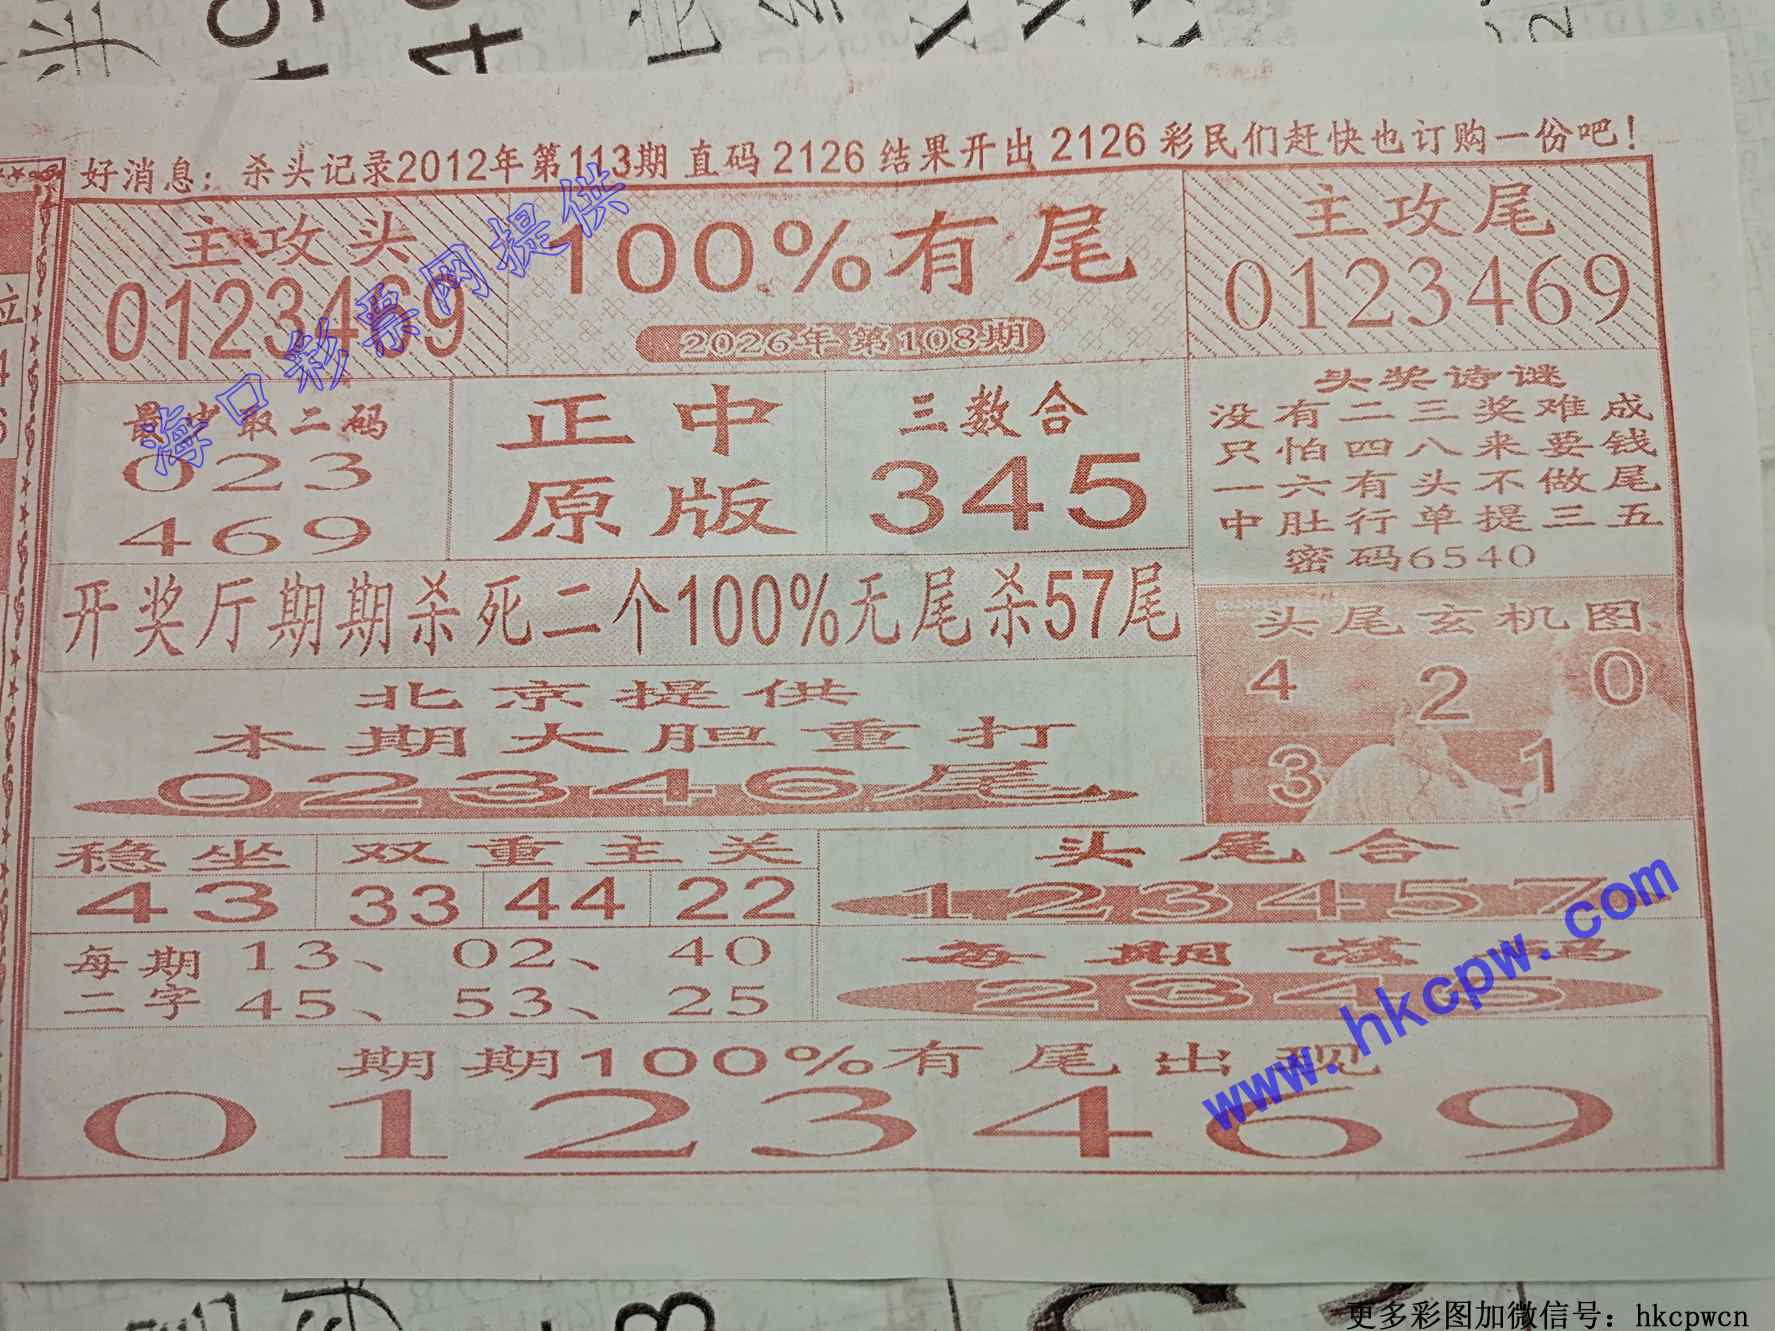 好消息：杀头记录2012年第113期 直码 2126 结果开出 2126 彩民们赶快也订购一份吧！
主攻头
0123469
100%有尾
2026年第108期
主攻尾
0123469
最少取二码
023
469
正中
原版
三数合
345
头奖诗谜
没有二三奖难成
只怕四八来要钱
一六有头不做尾
中肚行单提三五
密码6540
开奖厅期期杀死二个100%无尾杀57尾
头尾玄机图
4 2 0
3 1
北京提供
本期大胆重打
02346尾
稳坐
43
双重主关
33 44 22
头尾合
123457
每期
二字
13、 02、 40
45、 53、 25
每期落码
2345
期期100%有尾出现
0123469
海口彩票网提供
www.hkcpw.com
更多彩图加微信号：hkcpwcn